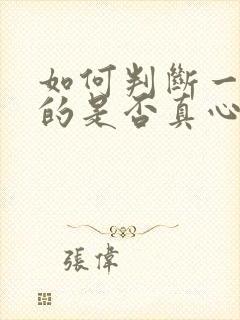 如何判斷一
的是否真心
張偉